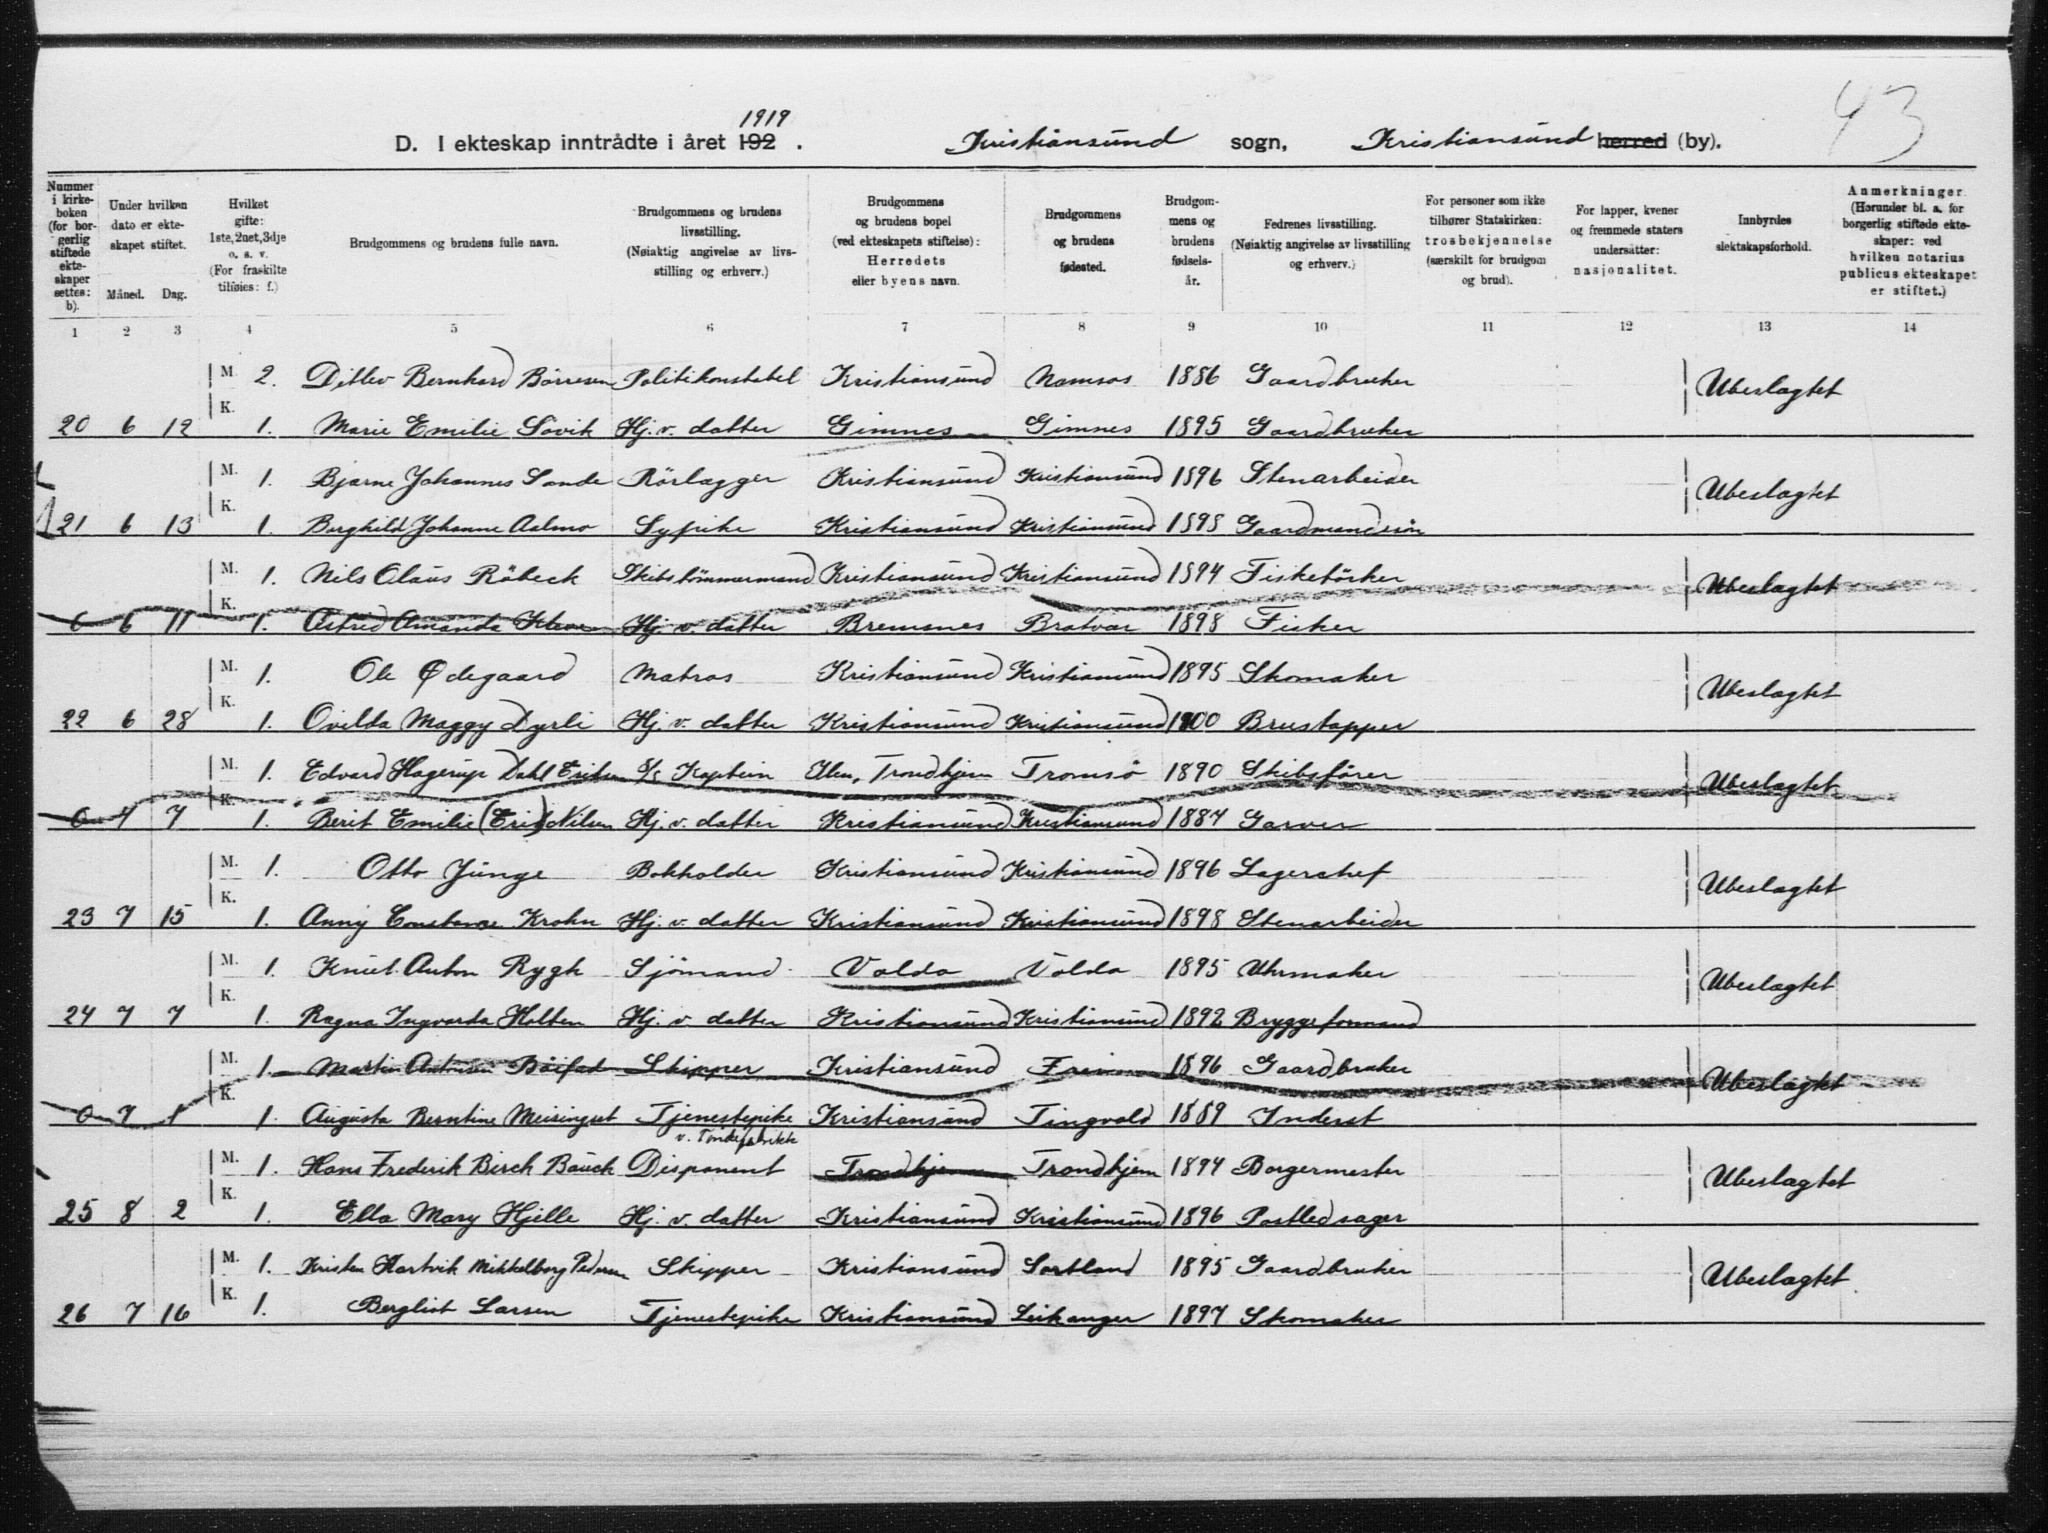 43
1919
D. I ekteskap inntrådte i året 192 . Kristiansund sogn, Kristiansund herred (by).
Nummer i kirkeboken (for borgerlig stiftede ekteskaper settes: b).
Under hvilken dato er ekteskapet stiftet.
Måned. Dag.
Hvilket gifte: 1ste, 2net, 3dje o. s. v. (For fraskilte tilføies: f.)
Brudgommens og brudens fulle navn.
Brudgommens og brudens livsstilling. (Nøiaktig angivelse av livsstilling og erhverv.)
Brudgommens og brudens bopel (ved ekteskapets stiftelse): Herredets eller byens navn.
Brudgommens og brudens fødested.
Brudgommens og brudens fødselsår.
Fedrenes livsstilling. (Nøiaktig angivelse av livsstilling og erhverv.)
For personer som ikke tilhører Statskirken: trosbekjennelse (særskilt for brudgom og brud).
For lapper, kvener og fremmede staters undersåtter: nasjonalitet.
Innbyrdes slektskapsforhold.
Anmerkninger (Herunder bl. a. for borgerlig stiftede ekteskaper: ved hvilken notarius publicus ekteskapet er stiftet.)
1 2 3 4 5 6 7 8 9 10 11 12 13 14
M. 2. Ditlev Bernhard Börresen Politikonstabel Kristiansund Namsos 1886 Gaardbruker Ubeslagtet
20 6 12 K. 1. Marie Emilie Sövik Hj. v. datter Gimnes Gimnes 1895 Gaardbruker
M. 1. Bjarne Johannes Sande Rörlægger Kristiansund Kristiansund 1896 Stenarbeider Ubeslagtet
21 6 13 K. 1. Borghild Johanne Aalmo Sypike Kristiansund Kristiansund 1898 Gaardmandssön
M. 1. Nils Olaus Röbeck Skibstömmermand Kristiansund Kristiansund 1894 Fisketörker Ubeslagtet
0 6 11 K. 1. Astrid Amanda Hj. v. datter Bremsnes Bratvær 1898 Fisker
M. 1. Ole Ødegaard Matros Kristiansund Kristiansund 1895 Skomaker Ubeslagtet
22 6 28 K. 1. Ovilda Maggy Dyrli Hj. v. datter Kristiansund Kristiansund 1900 Brustapper
M. 1. Edvard Hagerup Dahl Eriksen Kaptein Ilen, Trondhjem Tromsö 1890 Skibsförer Ubeslagtet
0 7 7 K. 1. Berit Emilie (Eri) Nilsen Hj. v. datter Kristiansund Kristiansund 1887 Garver
M. 1. Otto Junge Bokholder Kristiansund Kristiansund 1896 Lagerchef Ubeslagtet
23 7 15 K. 1. Anny Constance Krohn Hj. v. datter Kristiansund Kristiansund 1898 Stenarbeider
M. 1. Knut Anton Rygh Sjömand Volda Volda 1895 Uhrmaker Ubeslagtet
24 7 7 K. 1. Ragna Ingvarda Holten Hj. v. datter Kristiansund Kristiansund 1892 Bryggeformand
M. 1. Martin Antonsen Böifot Skipper Kristiansund 1896 Gaardbruker Ubeslagtet
0 7 1 K. 1. Augusta Berntine Meisingset Tjenestepike Kristiansund Tingvold 1889 Inderst
v. Töndefabrikk
M. 1. Hans Frederik Birch Bauck Disponent Trondhjem Trondhjem 1894 Borgermester Ubeslagtet
25 8 2 K. 1. Ella Mary Hjelle Hj. v. datter Kristiansund Kristiansund 1896 Postledsager
M. 1. Kristen Hartvik Mikkelborg Pedersen Skipper Kristiansund Sortland 1895 Gaardbruker Ubeslagtet.
26 7 16 K. 1. Bergliot Larsen Tjenestepike Kristiansund Leikanger 1897 Skomaker